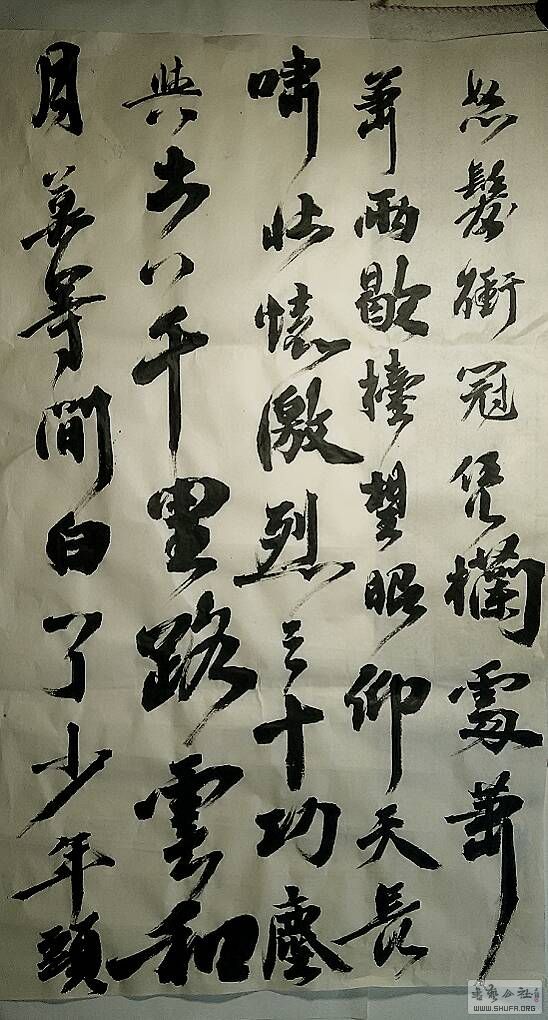 怒髮衝冠凭欄處蕭
蕭雨歇擡望眼仰天長
嘯壯懷激烈三十功塵
與土八千里路雲和
月莫等閒白了少年頭
書法公社
WWW.SHUFA.ORG